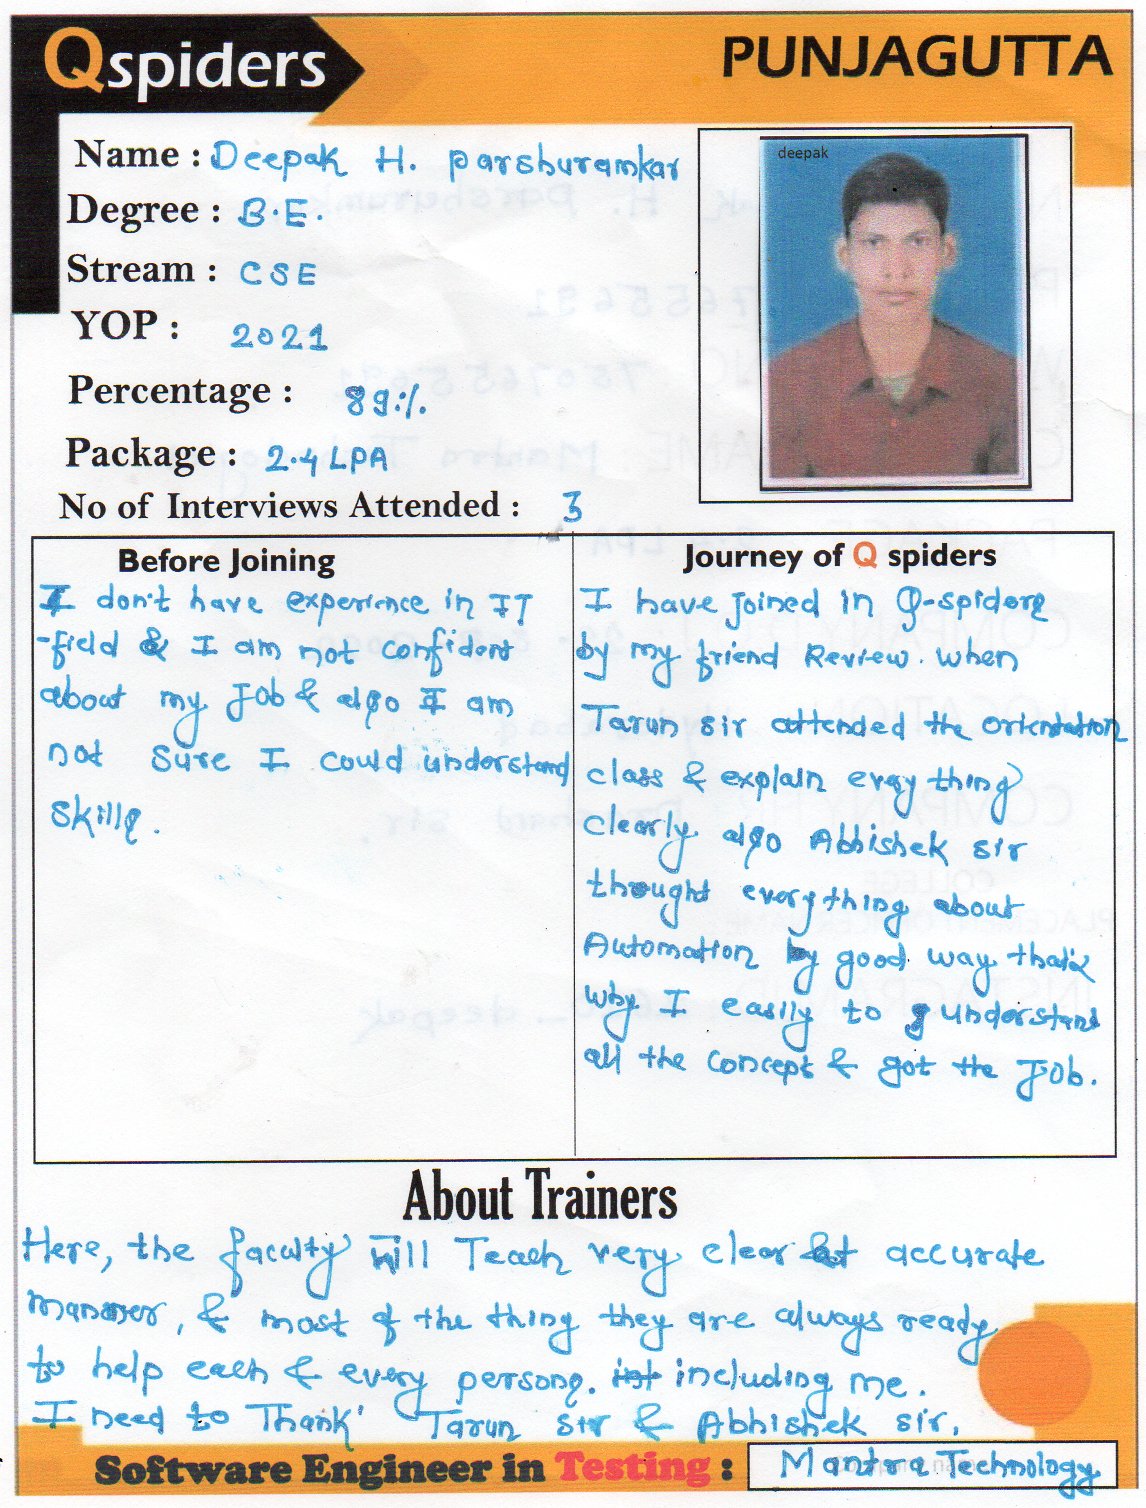 Qspiders
PUNJAGUTTA
Name : Deepak H. Parshuramkar
deepak
Degree : B.E.
Stream : CSE
YOP : 2021
Percentage : 89%
Package : 2.4 LPA
No of Interviews Attended : 3
Before Joining
I don't have experience in IT
field & I am not confident
about my Job & also I am
not sure I could understand
skills.
Journey of Q spiders
I have joined in Q-spiders
by my friend Review. when
Tarun sir attended the orientation
class & explain everything
clearly also Abhishek sir
thought everything about
Automation by good way that's
why I easily to understand
all the concept & got the Job.
About Trainers
Here, the faculty will Teach very clear accurate
manner, & most of the thing they are always ready
to help each & every persons. including me.
I need to Thank' Tarun sir & Abhishek sir.
Software Engineer in Testing : Mantra Technology